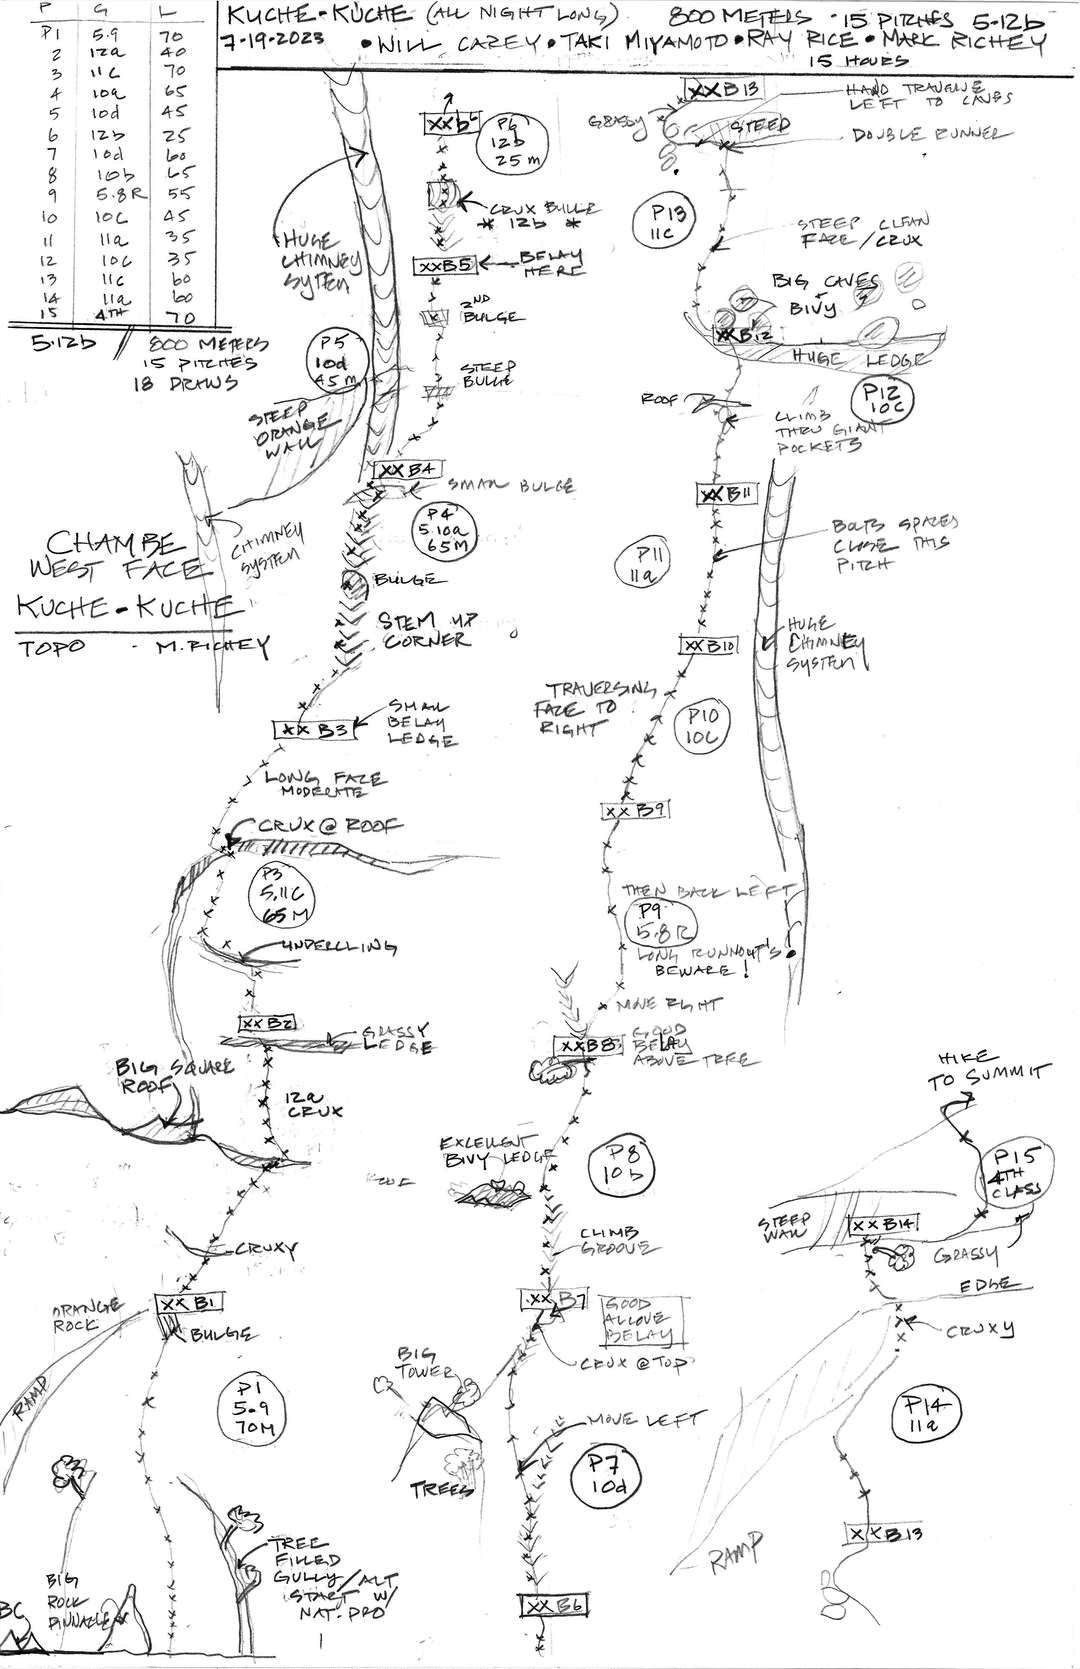 P G L
P1 5.9 70
2 12a 40
3 11c 70
4 10a 65
5 10d 45
6 12b 25
7 10d 60
8 10b 65
9 5.8R 55
10 10c 45
11 11a 35
12 10c 35
13 11c 60
14 11a 60
15 4TH 70
5.12b // 800 METERS
15 PITCHES
18 DRAWS
KUCHE-KUCHE (ALL NIGHT LONG) 800 METERS · 15 PITCHES 5-12b
7-19-2023 • WILL CAREY • TAKI MIYAMOTO • RAY RICE • MARK RICHEY
15 HOURS
XX B6
P6
12b
25 M
CRUX BULGE
* 12b *
XX B5
BELAY
HERE
2ND
BULGE
STEEP
BULGE
HUGE
CHIMNEY
SYSTEM
P5
10d
45 M
STEEP
ORANGE
WALL
CHIMNEY
SYSTEM
XX B4
SMALL BULGE
P4
5.10a
65M
BULGE
STEM UP
CORNER
CHAMBE
WEST FACE
KUCHE-KUCHE
TOPO - M. RICHEY
XX B3
SMALL
BELAY
LEDGE
LONG FACE
MODERATE
CRUX @ ROOF
P3
5.11C
65M
UNDERCLING
XX B2
GRASSY
LEDGE
BIG SQUARE
ROOF
12a
CRUX
CRUXY
XX B1
BULGE
ORANGE
ROCK
RAMP
P1
5.9
70M
BIG
ROCK
PINNACLE
BC
TREE
FILLED
GULLY/ALT
START W/
NAT. PRO
XX B13
HAND TRAVERSE
LEFT TO CAVES
GRASSY
STEEP
DOUBLE RUNNER
P13
11c
STEEP CLEAN
FACE/CRUX
BIG CAVES
BIVY
XX B12
HUGE LEDGE
P12
10C
ROOF
CLIMB
THRU GIANT
POCKETS
XX B11
P11
11a
BOLTS SPACED
CLOSE THIS
PITCH
XX B10
HUGE
CHIMNEY
SYSTEM
TRAVERSING
FACE TO
RIGHT
P10
10C
XX B9
THEN BACK LEFT
P9
5.8 R
LONG RUNNOUT'S
BEWARE!
MOVE RIGHT
XX B8
GOOD
BELAY
ABOVE TREE
EXCELLENT
BIVY LEDGE
P8
10b
CLIMB
GROOVE
XX B7
GOOD
ALLOVE
BELAY
CRUX @ TOP
BIG
TOWER
TREES
MOVE LEFT
P7
10d
XX B6
HIKE
TO SUMMIT
P15
4TH
CLASS
STEEP
WALL
XX B14
GRASSY
EDGE
CRUXY
P14
11a
RAMP
XX B13